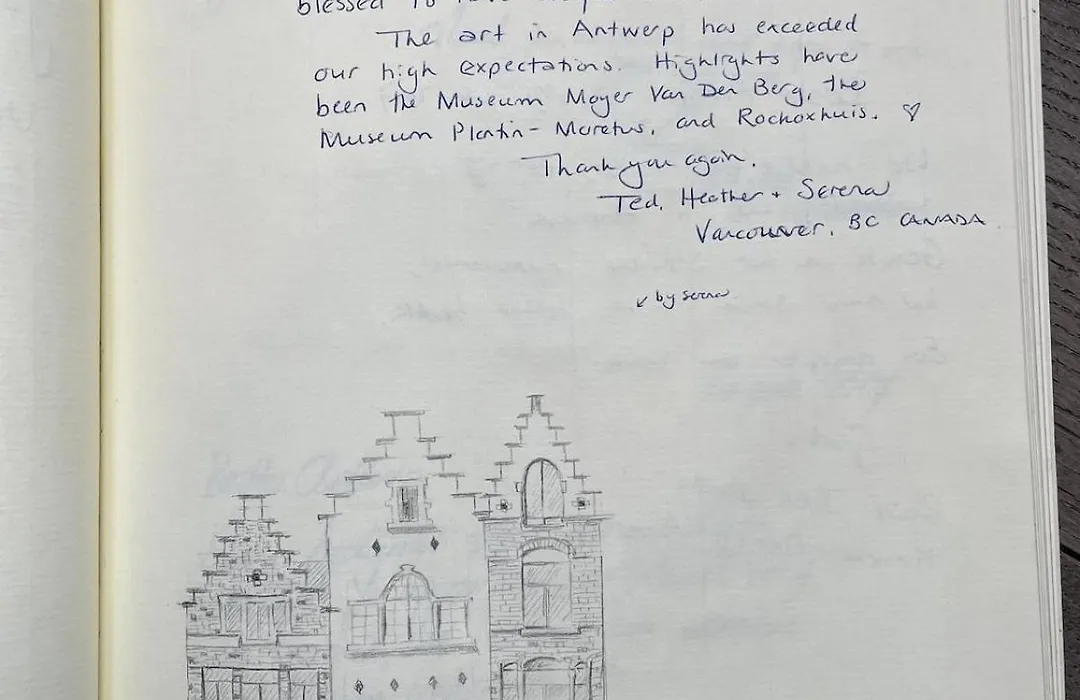 blessed to have
The art in Antwerp has exceeded
our high expectations. Highlights have
been the Museum Mayer Van Den Berg, the
Museum Plantin-Moretus, and Rockoxhuis. ♡
Thank you again.
Ted, Heather + Serena
Vancouver, BC CANADA
↙ by Serena